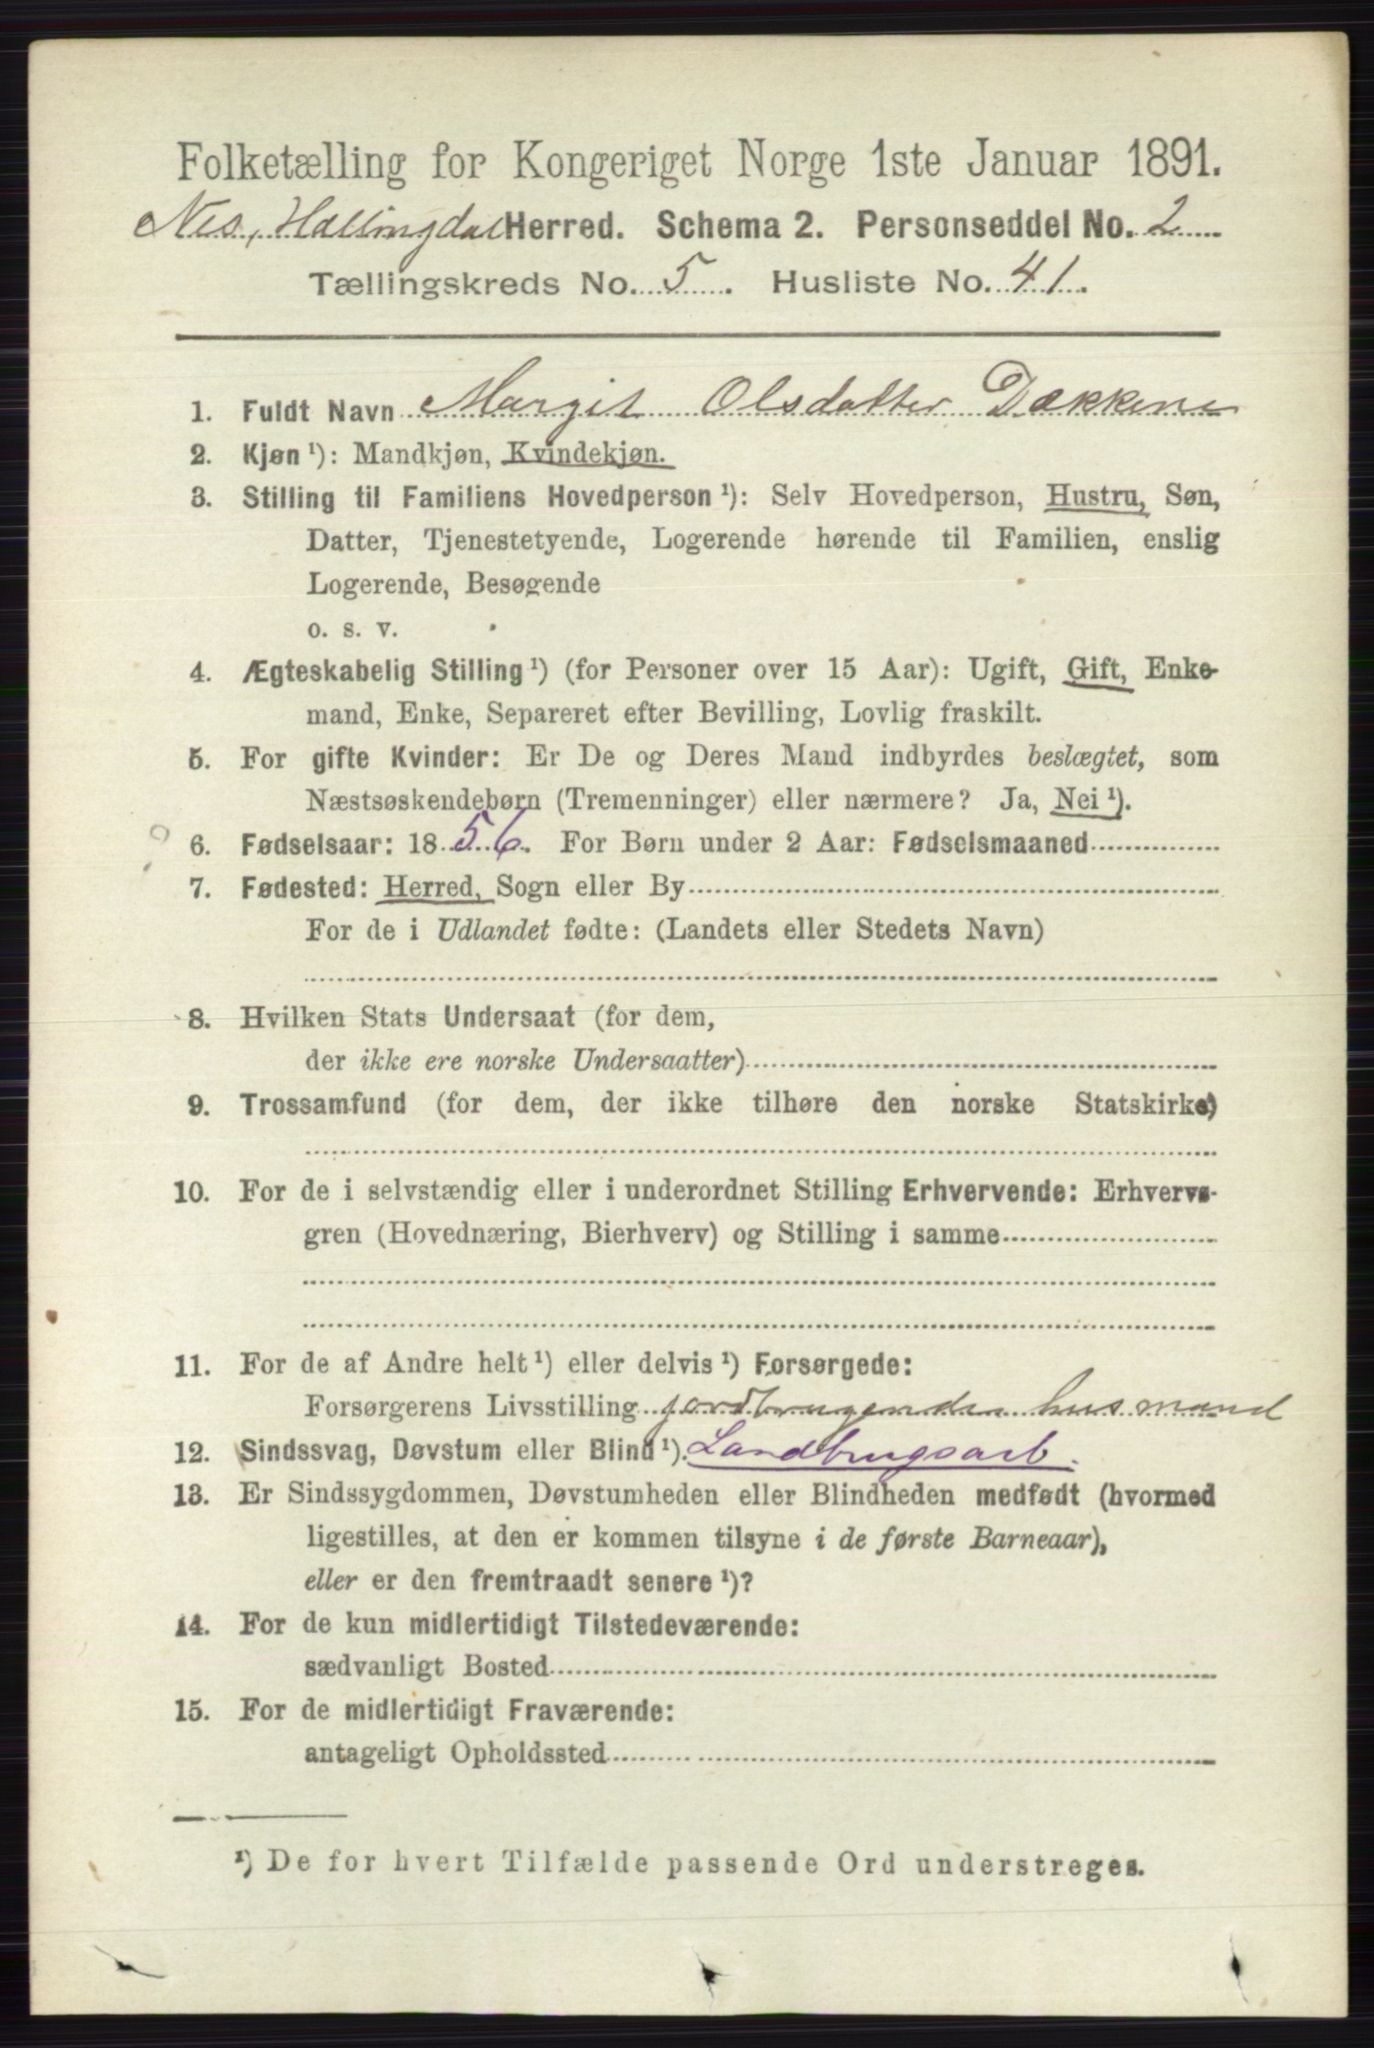 Folketælling for Kongeriget Norge 1ste Januar 1891.
Nes, Hallingdal Herred. Schema 2. Personseddel No. 2
Tællingskreds No. 5. Husliste No. 41.
1. Fuldt Navn Margit Olsdatter Dækkene
2. Kjøn ¹): Mandkjøn, Kvindekjøn.
3. Stilling til Familiens Hovedperson ¹): Selv Hovedperson, Hustru, Søn,
Datter, Tjenestetyende, Logerende hørende til Familien, enslig
Logerende, Besøgende
o. s. v.
4. Ægteskabelig Stilling ¹) (for Personer over 15 Aar): Ugift, Gift, Enke-
mand, Enke, Separeret efter Bevilling, Lovlig fraskilt.
5. For gifte Kvinder: Er De og Deres Mand indbyrdes beslægtet, som
Næstsøskendebørn (Tremenninger) eller nærmere? Ja, Nei ¹).
6. Fødselsaar: 1856. For Børn under 2 Aar: Fødselsmaaned
7. Fødested: Herred, Sogn eller By
For de i Udlandet fødte: (Landets eller Stedets Navn)
8. Hvilken Stats Undersaat (for dem,
der ikke ere norske Undersaatter)
9. Trossamfund (for dem, der ikke tilhøre den norske Statskirke)
10. For de i selvstændig eller i underordnet Stilling Erhvervende: Erhvervs-
gren (Hovednæring, Bierhverv) og Stilling i samme
11. For de af Andre helt ¹) eller delvis ¹) Forsørgede:
Forsørgerens Livsstilling jordbrugende husmand
12. Sindssvag, Døvstum eller Blind ¹). Landbrugsarb.
13. Er Sindssygdommen, Døvstumheden eller Blindheden medfødt (hvormed
ligestilles, at den er kommen tilsyne i de første Barneaar),
eller er den fremtraadt senere ¹)?
14. For de kun midlertidigt Tilstedeværende:
sædvanligt Bosted
15. For de midlertidigt Fraværende:
antageligt Opholdssted
¹) De for hvert Tilfælde passende Ord understreges.